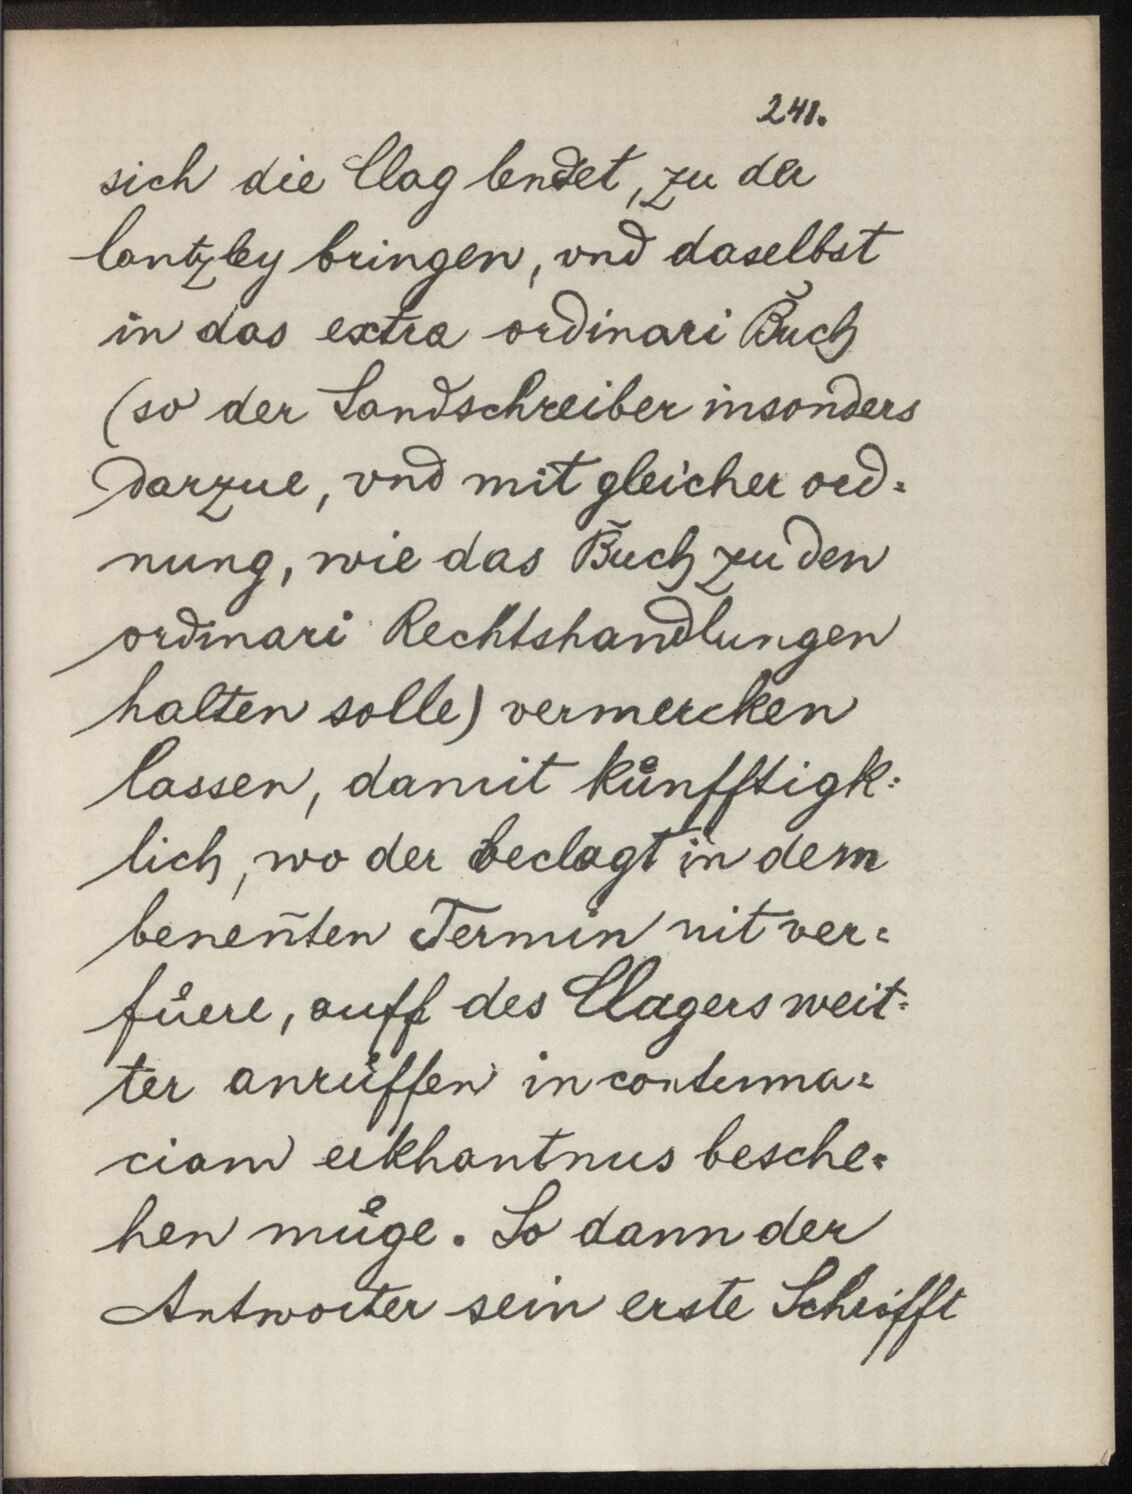 241.
sich die Clag lendet, zu der
Cantzley bringen, vnd daselbst
in das extra ordinari Bůch
(so der Landschreiber insonders
darzue, vnd mit gleicher ord=
nung, wie das Bůch zu den
ordinari Rechtshandlungen
halten solle) vermercken
lassen, damit kůnfftigk=
lich, wo der beclagt in dem
beneñten Termin nit ver=
fůere, auff des Clagers weit=
ter anrůffen in contuma=
ciam erkhantnus besche=
hen můge. So dann der
Antworter sein erste Schrifft